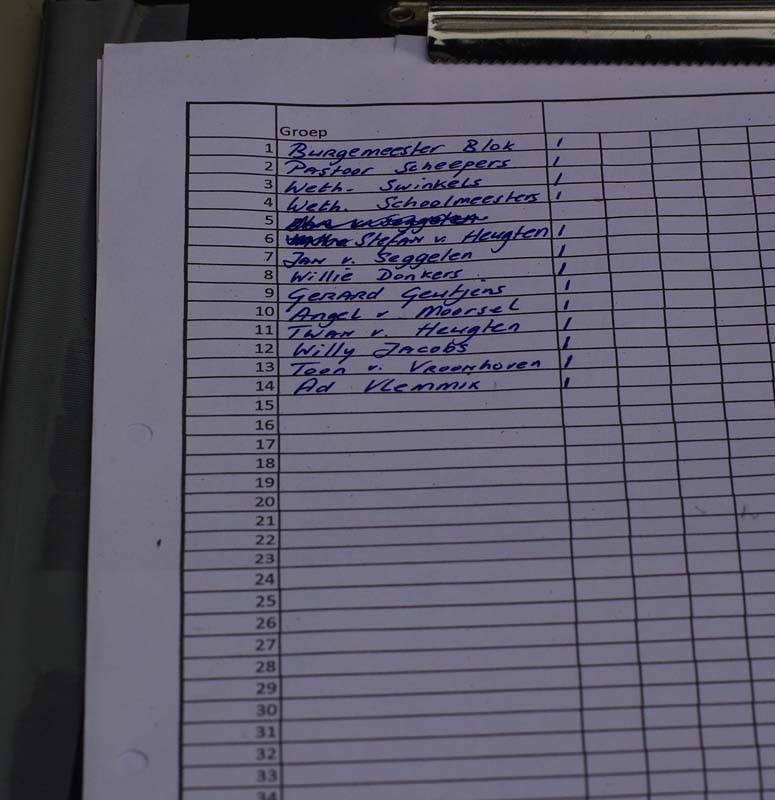 Groep
1 Burgemeester Blok 1
2 Pastoor Scheepers 1
3 Weth. Swinkels 1
4 Weth. Schoolmeesters 1
5
6 Stefan v. Heugten 1
7 Jan v. Seggelen 1
8 Willie Donkers 1
9 Gerard Geutjens 1
10 Angel v Moorsel 1
11 Twan v. Heugten 1
12 Willy Jacobs 1
13 Toon v. Vroonhoven 1
14 Ad Vlemmix 1
15
16
17
18
19
20
21
22
23
24
25
26
27
28
29
30
31
32
33
34